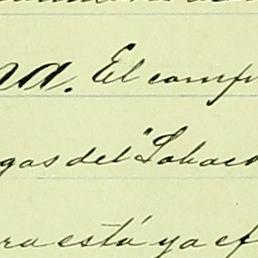 na. El comp
gas del "Lobac
ra está ya ef